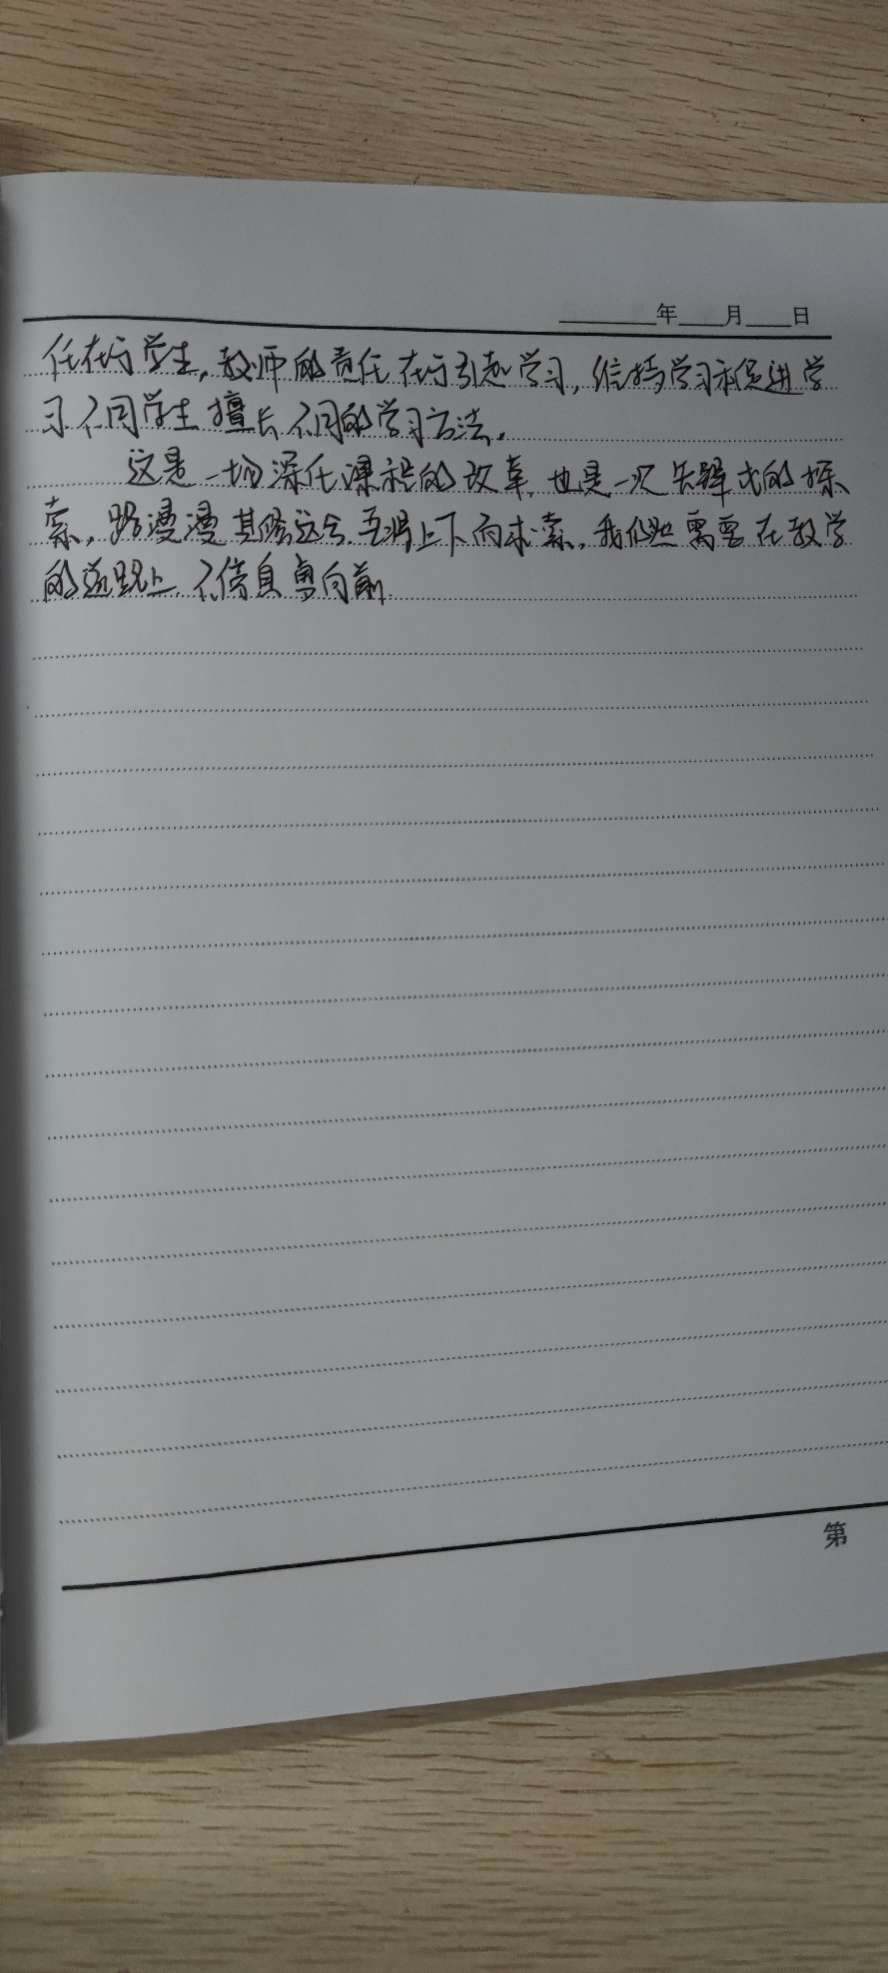 年 月 日
任在于学生，教师的责任在于引起学习，维持学习和促进学
习不同学生擅长不同的学习方法。
这是一场深化课程的改革，也是一次先锋式的探
索，路漫漫其修远兮，吾将上下而求索，我们也需要在教学
的道路上，不停息勇向前
第